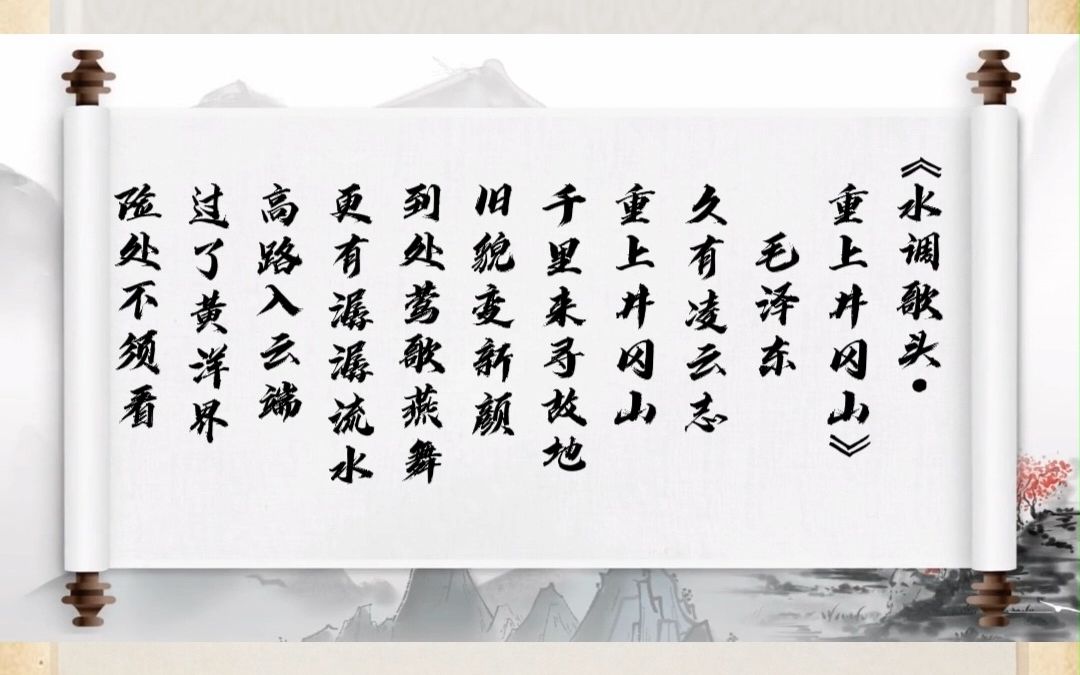 《水调歌头•
重上井冈山》
毛泽东
久有凌云志
重上井冈山
千里来寻故地
旧貌变新颜
到处莺歌燕舞
更有潺潺流水
高路入云端
过了黄洋界
险处不须看